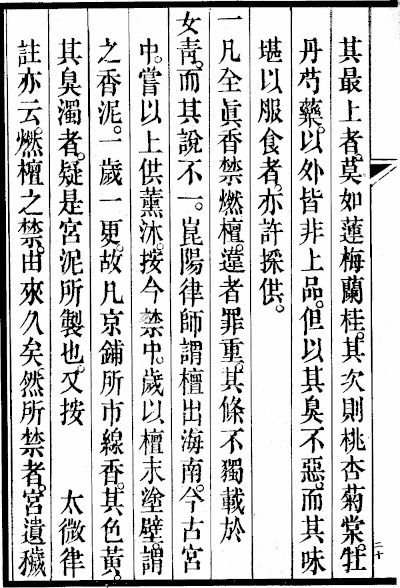 其最上者。莫如蓮梅蘭桂。其次則桃杏菊棠。牡
丹芍藥。以外皆非上品。但以其臭不惡。而其味
堪以服食者。亦許採供。
一凡全眞香禁燃檀。違者罪重。其條不獨載於
女青。而其說不一。崑陽律師謂檀出海南。今古宮
中。嘗以上供薰沐。按今禁中。歲以檀末塗壁。謂
之香泥。一歲一更。故凡京鋪所市線香。其色黃。
其臭濁者。疑是宮泥所製也。又按 太微律
註亦云。燃檀之禁。由來久矣。然所禁者。宮遺穢
二十